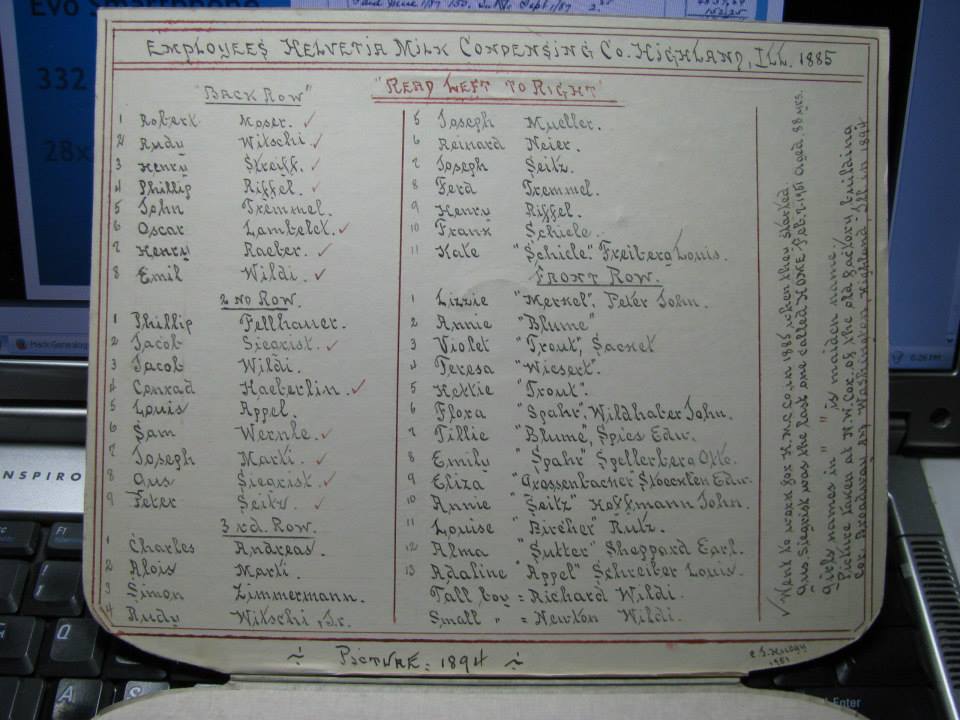 Evo Smartphone
332
28x
EMPLOYEES HELVETIA MILK CONDENSING CO. HIGHLAND, ILL. 1885
"READ LEFT TO RIGHT"
"BACK ROW"
1 Robert Moser. ✓
2 Rudy Witschi ✓
3 Henry Streiff. ✓
4 Phillip Riffel. ✓
5 John Tremmel.
6 Oscar Lambelet. ✓
7 Henry Raeber. ✓
8 Emil Wildi. ✓
2ND ROW.
1 Phillip Fellhauer.
2 Jacob Siegrist. ✓
3 Jacob Wildi.
4 Conrad Haeberlin. ✓
5 Louis Appel.
6 Sam Wernle. ✓
7 Joseph Marki. ✓
8 Gus Siegrist. ✓
9 Peter Seitz. ✓
3rd. ROW.
1 Charles Andreas.
2 Alois Marki.
3 Simon Zimmermann.
4 Rudy Witschi, Jr.
5 Joseph Mueller.
6 Reinard Neier.
7 Joseph Seitz.
8 Ferd Tremmel.
9 Henry Riffel.
10 Frank Schiele.
11 Kate "Schiele." Freiberg Louis.
FRONT ROW.
1 Lizzie "Merkel", Peter John.
2 Annie "Blume"
3 Violet "Trout", Sachet
4 Teresa "Wiesert".
5 Hettie "Trout".
6 Flora "Spahr", Wildhaber John.
7 Tillie "Blume", Spies Edw.
8 Emily "Spahr" Spellerberg Otto.
9 Eliza "Grossenbacher" Stoecklen Edw.
10 Annie "Seitz" Hoffmann John.
11 Louise "Bircher" Rutz.
12 Alma "Sutter" Sheppard Earl.
13 Adaline "Appel" Schreiber Louis.
Tall boy = Richard Wildi.
Small " = Newton Wildi.
✓ Went to work for H.M.C. Co. in 1885 when they started
Gus Siegrist was the last one called HOME Feb. 7-1951 aged. 88 yrs.
Girls names in " " is maiden name.
Picture taken at N.W. Cor. of the old factory building
Cor. Broadway and Washington, Highland, Ill. in 1894
~ PICTURE: 1894 ~
1951
INSPIRO
6:26 PM
Enter